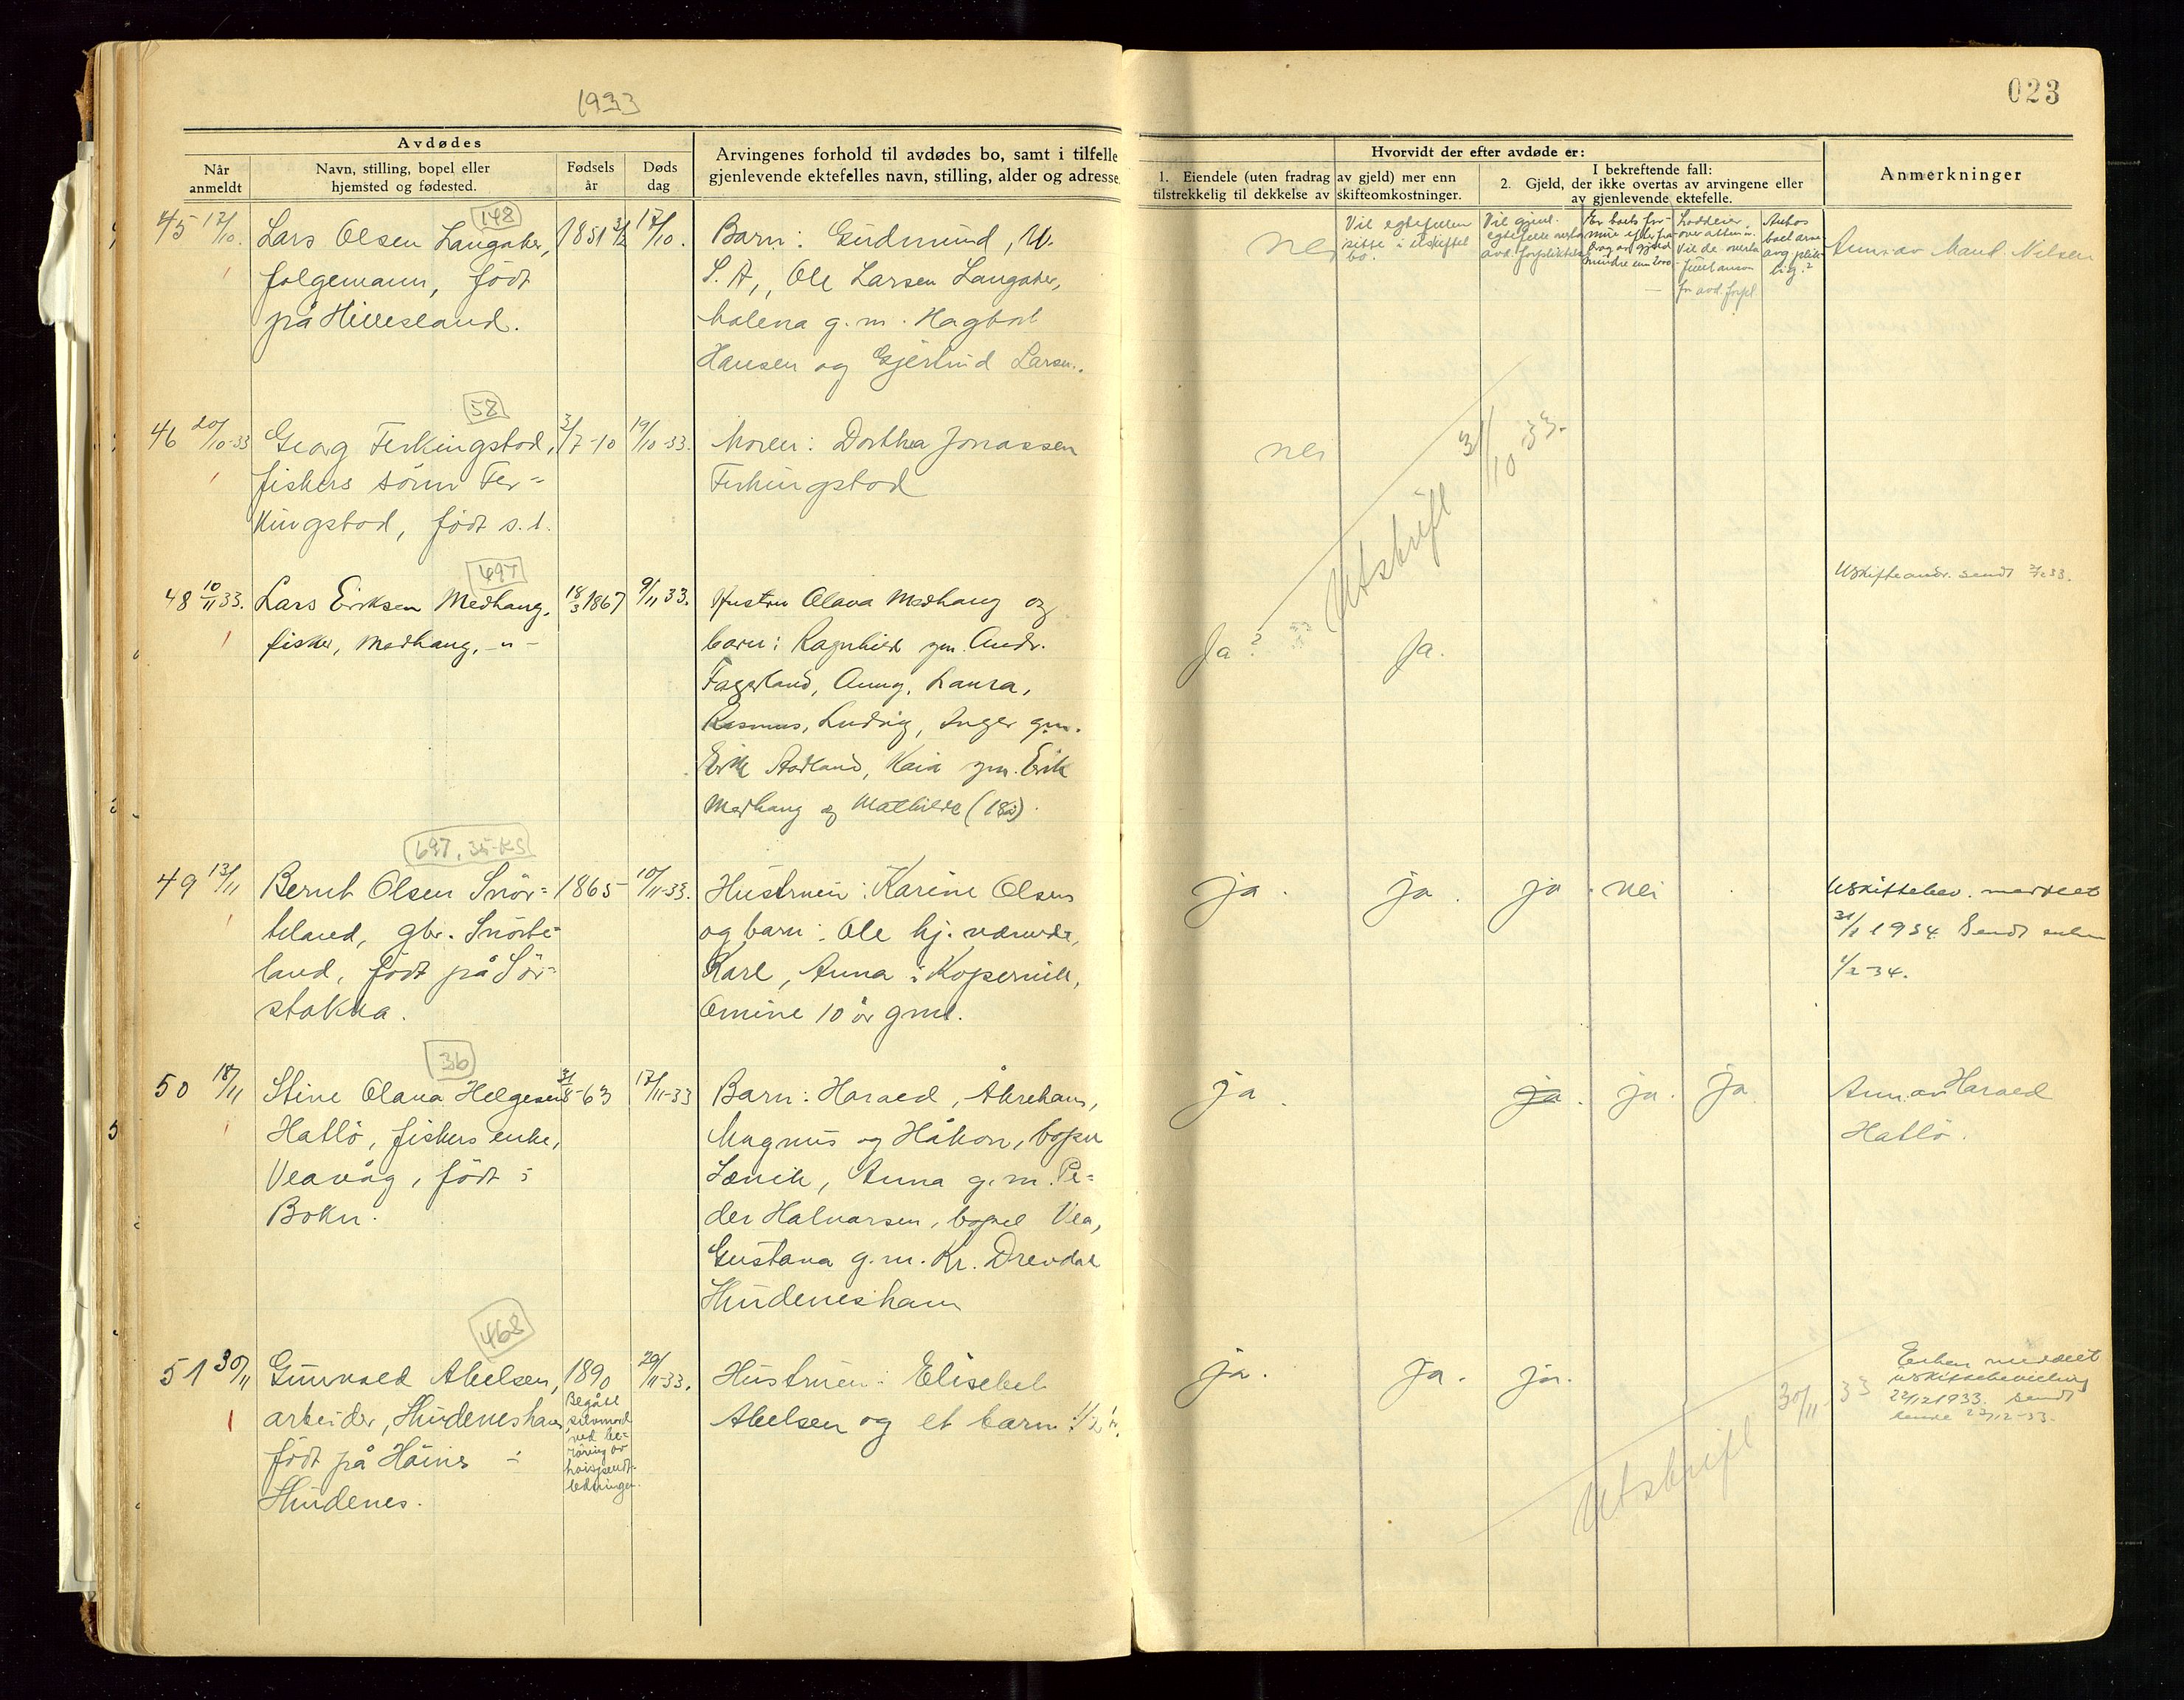 1933
023
Avdødes
Når
anmeldt
Navn, stilling, bopel eller
hjemsted og fødested.
Fødsels
år
Døds
dag
Arvingenes forhold til avdødes bo, samt i tilfelle
gjenlevende ektefelles navn, stilling, alder og adresse.
Hvorvidt der efter avdøde er:
1. Eiendele (uten fradrag av gjeld) mer enn
tilstrekkelig til dekkelse av skifteomkostninger.
I bekreftende fall:
2. Gjeld, der ikke overtas av arvingene eller
av gjenlevende ektefelle.
Anmerkninger
Vil egtefellen
sitte i uskiftet
bo.
Vil gjenl.
egtefelle overta
avd. forpliktelser
148
45 17/10. Lars Olsen Langaker, 1851 17/10.
folgemann, født
på Hillesland.
Barn: Gudmund,
S. A., Ole Larsen Langaker,
Malena g.m. Hagbart
Hansen og Gjertrud Larsen.
nei
Anm. av Mand. Nilsen
58
46 20/10-33 Georg Ferkingstad, 3/7-10 19/10-33.
fiskers sønn Fer=
kingstad, født s. s.
Moren: Dorthea Jonassen
Ferkingstad
nei
Utskrift 31/10 33.
497
48 10/11 33. Lars Eriksen Medhaug, 18/3 1867 9/11 33.
fisker, Medhaug, -"-
Hustru Olava Medhaug og
barn: Ragnhild gm. Andr.
Fagerland, Anny, Laura,
Rasmus, Ludvig, Inger gm.
Erik Stadland, Kaia gm. Erik
Medhaug og Mathilde (18 år).
Ja? Ja.
Uskifteandr. sendt
697, 35-KS
49 13/11 Bernt Olsen Snør= 1865 10/11-33.
teland, gbr. Snørte=
land, født på Sør=
stokka.
Hustruen: Karine Olsen
og barn: Ole hj. værende,
Karl, Anna i Kopervik,
Omine 10 år gml.
ja. ja. ja. nei
Uskiftebev. meddelt
31/1 1934. Sendt
1/2-34.
36
50 18/11 Stine Olava Helgesen 31/8-63 17/11-33
Hatlø, fiskers enke,
Veavåg, født i
Bokn.
Barn: Harald, Åkrehavn,
Magnus og Håkon, bopel
Lænik, Anna g.m. Pe=
der Halvarsen, bopel Vea,
Gustava g.m. Kr. Drevdal
Hudeneshavn
ja. ja. ja. ja.
Anm. av Harald
Hatlø.
468
51 30/11 Gunvald Abelsen, 1890 29/11-33.
arbeider, Hudeneshavn
født på Høines i
Hudenes.
Begått
selvmord
ved be=
røring av
høispendt-
ledningen.
Hustruen: Elisebet
Abelsen og et barn 1/2 år.
ja. ja. ja.
Enken meddelt
uskiftebevilling
22/12 1933. Sendt
Utskrift 30/11 33